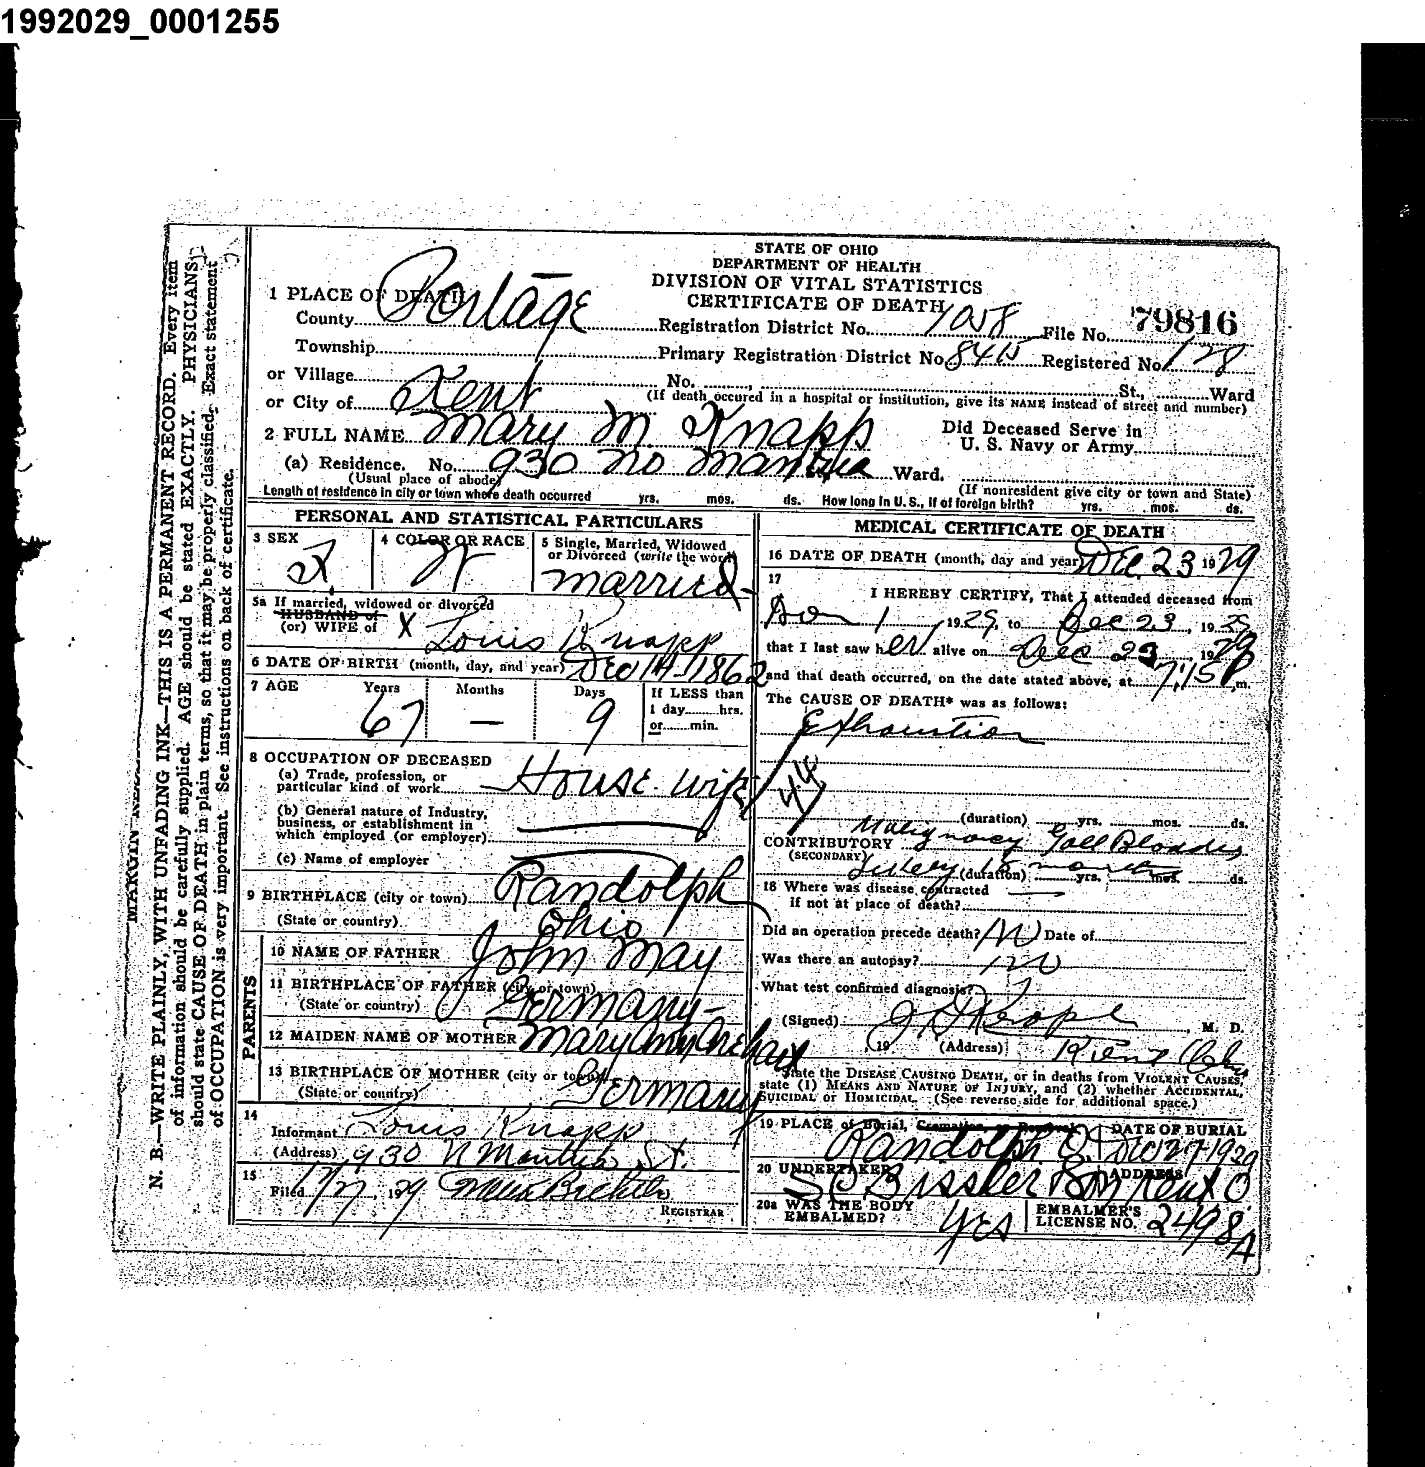 1992029_0001255
STATE OF OHIO
DEPARTMENT OF HEALTH
DIVISION OF VITAL STATISTICS
CERTIFICATE OF DEATH
1 PLACE OF DEATH
County Portage Registration District No. 1058 File No. 79816
Township Primary Registration District No. 8415 Registered No. 128
or Village No. St., Ward
or City of Kent (If death occured in a hospital or institution, give its NAME instead of street and number)
2 FULL NAME Mary M. Knapp Did Deceased Serve in U. S. Navy or Army
(a) Residence. No. 930 No Mantua Ward.
(Usual place of abode) (If nonresident give city or town and State)
Length of residence in city or town where death occurred yrs. mos. ds. How long in U. S., if of foreign birth? yrs. mos. ds.
PERSONAL AND STATISTICAL PARTICULARS
3 SEX F 4 COLOR OR RACE W 5 Single, Married, Widowed or Divorced (write the word) married
5a If married, widowed or divorced
HUSBAND of
(or) WIFE of X Louis Knapp
6 DATE OF BIRTH (month, day, and year) Dec 14-1862
7 AGE Years 67 Months — Days 9 If LESS than 1 day hrs. or min.
8 OCCUPATION OF DECEASED
(a) Trade, profession, or particular kind of work House wife
(b) General nature of Industry, business, or establishment in which employed (or employer)
(c) Name of employer
9 BIRTHPLACE (city or town) Randolph
(State or country) Ohio
PARENTS
10 NAME OF FATHER John May
11 BIRTHPLACE OF FATHER (city or town)
(State or country) Germany
12 MAIDEN NAME OF MOTHER Mary Ann
13 BIRTHPLACE OF MOTHER (city or town)
(State or country) Germany
14
Informant Louis Knapp
(Address) 930 N Mantua St.
15
Filed 12/27, 1929 REGISTRAR
MEDICAL CERTIFICATE OF DEATH
16 DATE OF DEATH (month, day and year) Dec. 23 1929
17
I HEREBY CERTIFY, That I attended deceased from
1, 1929, to Dec 23, 1929
that I last saw her alive on Dec 23, 1929
and that death occurred, on the date stated above, at 7:15 P m.
The CAUSE OF DEATH* was as follows:
Exhaustion
44
(duration) yrs. mos. ds.
CONTRIBUTORY Malignacy Gall Bladder
(SECONDARY) (duration) yrs. mos. ds.
18 Where was disease contracted
if not at place of death?
Did an operation precede death? No Date of
Was there an autopsy? no
What test confirmed diagnosis?
(Signed) M. D.
, 19 (Address) Kent Ohio
*State the DISEASE CAUSING DEATH, or in deaths from VIOLENT CAUSES, state (1) MEANS AND NATURE OF INJURY, and (2) whether ACCIDENTAL, SUICIDAL or HOMICIDAL. (See reverse side for additional space.)
19 PLACE of Burial, Cremation or Removal Randolph O. DATE OF BURIAL Dec 27-1929
20 UNDERTAKER S C Bissler ADDRESS Kent O
20a WAS THE BODY EMBALMED? Yes EMBALMER'S LICENSE NO. 2498 A
N. B.—WRITE PLAINLY, WITH UNFADING INK—THIS IS A PERMANENT RECORD. Every item
of information should be carefully supplied. AGE should be stated EXACTLY. PHYSICIANS
should state CAUSE OF DEATH in plain terms, so that it may be properly classified. Exact statement
of OCCUPATION is very important. See instructions on back of certificate.